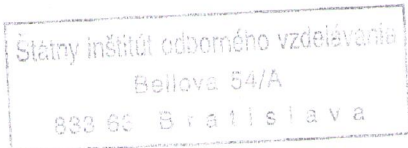 Štátny inštitút odborného vzdelávania
Bellova 54/A
833 63 Bratislava